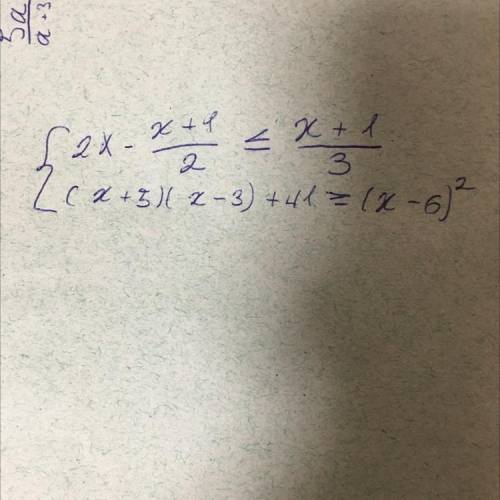 5a/(a+3
{ 2x - (x+1)/2 ≤ (x+1)/3
(x+5)(x-3)+41 ≥ (x-6)²